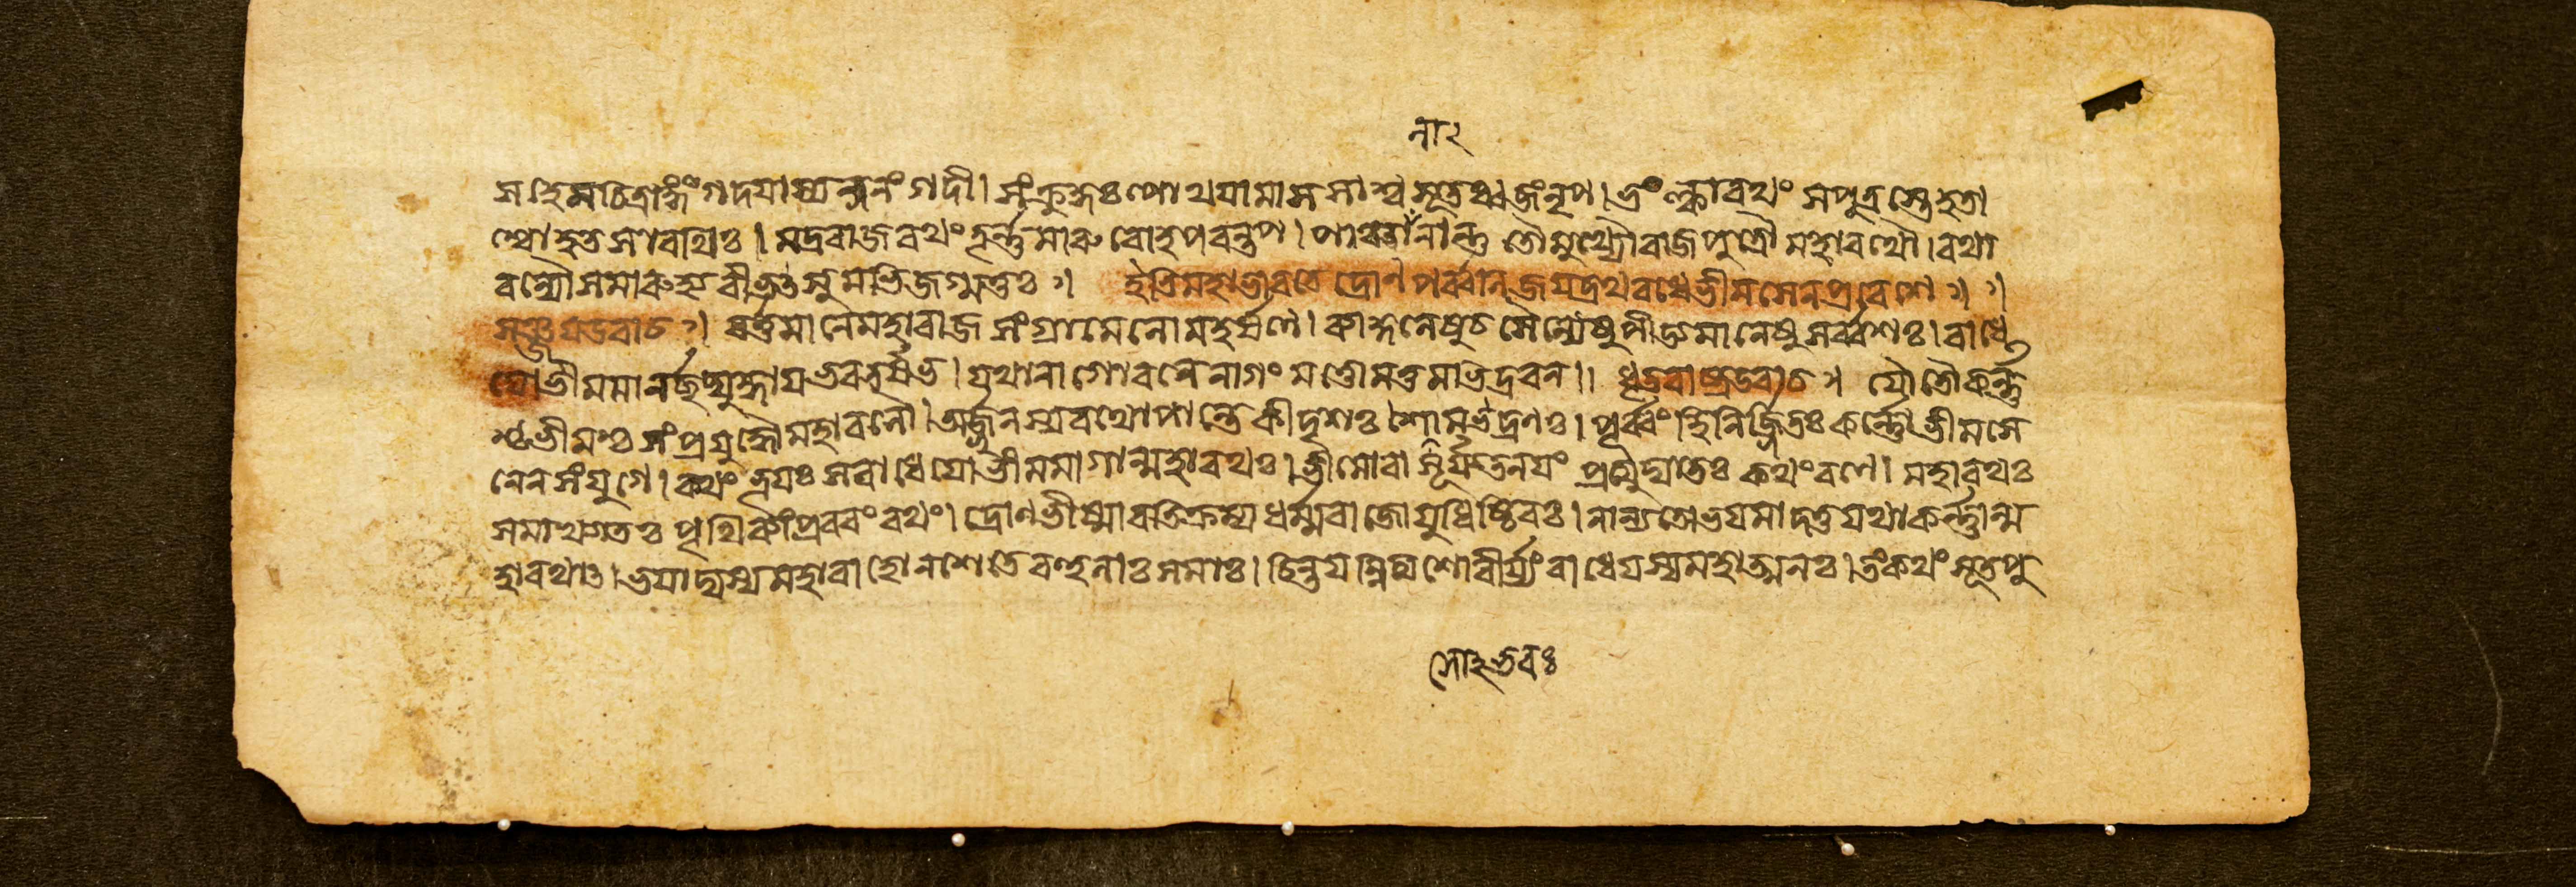 না২
স হেমচিত্রাং গদয়া স্যন্দনং গদী। সংক্রুদ্ধঃ পোথয়ামাস সাশ্বসূতধ্বজং নৃপ। তং ত্যক্ত্বা রথং স পুত্রস্তে হতা
শ্বো হতসারথিঃ। মদ্ররাজরথং তূর্ণ্ণমারুরোহ পরন্তপ। পাঞ্চালানান্তু তৌ মুখ্যৌ রাজপুত্রৌ মহারথৌ। রথা
বন্যৌ সমারুহ্য সমভিজগ্মতুঃ ৷ ইতি মহাভারতে দ্রোণপর্ব্বনি জয়দ্রথবধে ভীমসেনপ্রবেশে ৷ ৷
সঞ্জয় উবাচ ৷ বর্ত্তমানে মহারাজ সংগ্রামে লোমহর্ষণে। চ সৈন্যেষু পীড্যমানেষু সর্ব্বশঃ। রাধে
যো ভীমমানর্চ্ছদ্যুদ্ধায় ভরতর্ষভ। যথা নাগো বনে নাগং মত্তো মত্তমভিদ্রবন॥ ধৃতরাষ্ট্র উবাচ ৷ যৌ তৌ কর্ণ্ণ
শ্চ ভীমশ্চ সংপ্রযুদ্ধৌ মহাবলৌ। অর্জ্জুনস্য রথোপান্তে কীদৃশঃ সোভবদ্রণঃ। পূর্ব্বং হি নির্জ্জিতঃ কর্ণ্ণো ভীমসে
নেন সংযুগে। কথং ভূয়ঃ স রাধেয়ো ভীমমাগান্মহারথঃ। ভীমো বা সূর্য্যতনয়ং প্রত্যুদ্যাতঃ কথং রণে। মহারথঃ
সমাখ্যাতঃ পৃথিব্যাং প্রবরং রথং। দ্রোণভীষ্মাবতিক্রম্য ধর্ম্মরাজো যুধিষ্ঠিরঃ। নান্যতো ভয়মাদত্ত যথা কর্ণ্ণান্ম
হারথাৎ। ভয়াদ্যস্য মহাবাহো ন শেতে বহুলাঃ সমাঃ। চিন্তয়ন্নিত্যশো বীর্য্যং রাধেয়স্য মহাত্মনঃ। তং কথং সূতপু